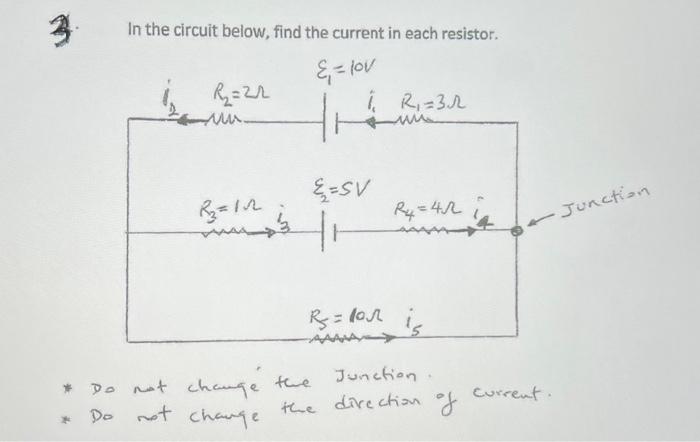 3.
In the circuit below, find the current in each resistor.
ℰ₁=10V
i₂ R₂=2Ω i₁ R₁=3Ω
ℰ₂=5V
R₃=1Ω i₃ R₄=4Ω i₄ Junction
R₅=10Ω i₅
* Do not change the Junction.
* Do not change the direction of current.